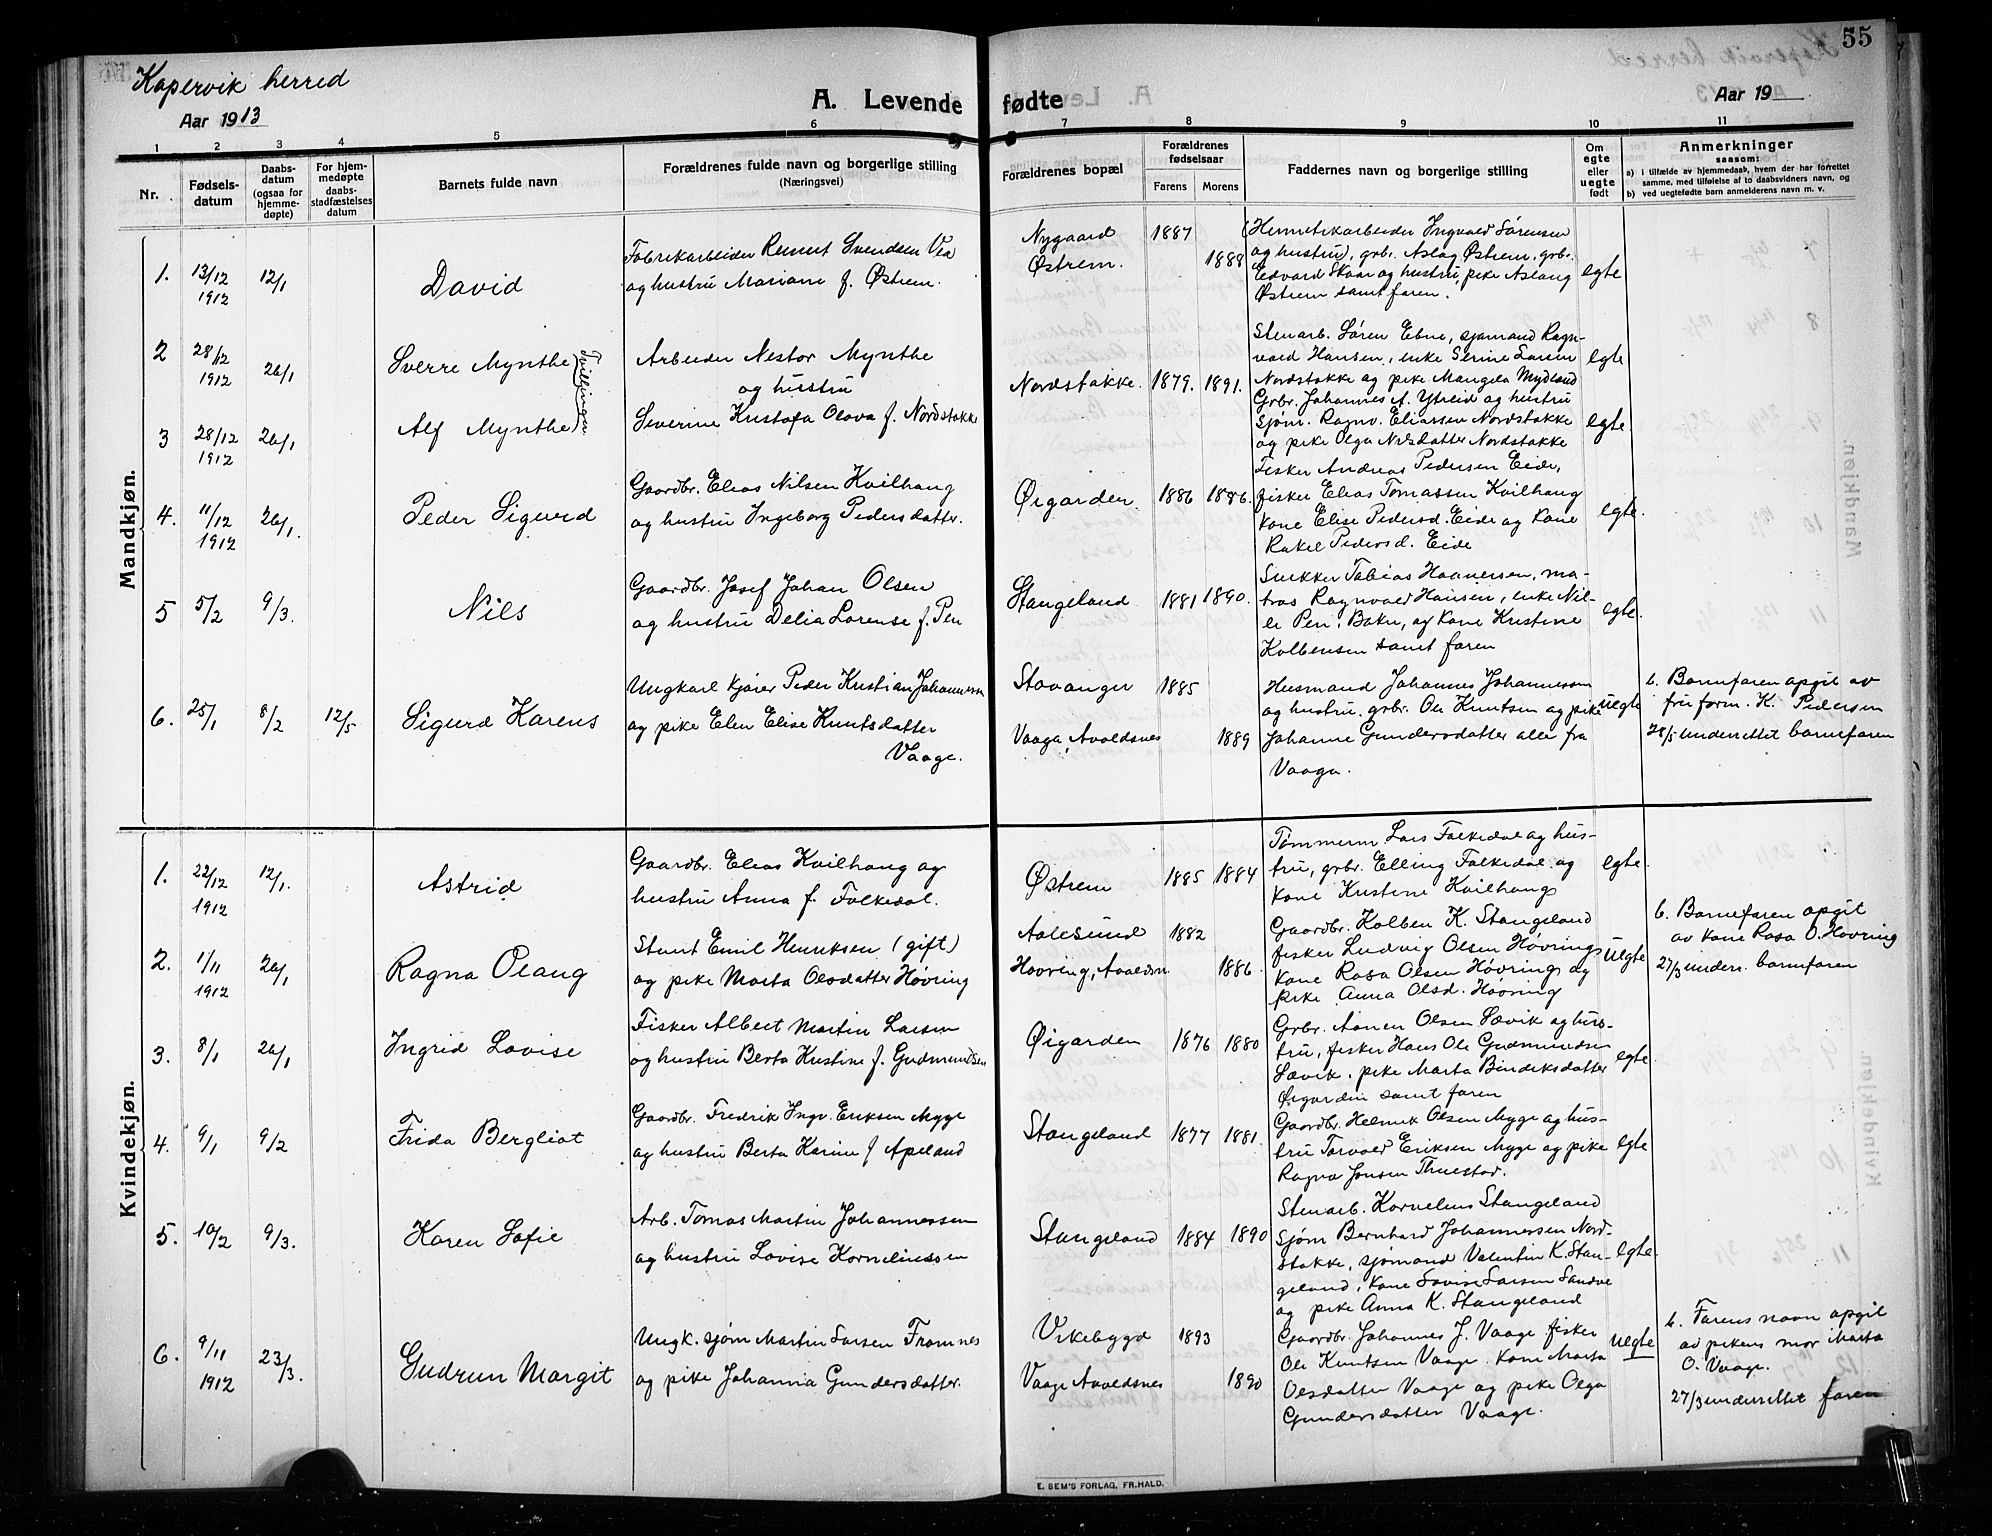 Kopervik herred
Aar 1913
A. Levende fødte
Aar 19
55
1 2 3 4 5 6 7 8 9 10 11
Nr.
Fødsels-
datum
Daabs-
datum
(ogsaa for
hjemme-
døpte)
For hjem-
medøpte
daabs-
stadfæstelses
datum
Barnets fulde navn
Forældrenes fulde navn og borgerlige stilling
(Næringsvei)
Forældrenes bopæl
Forældrenes
fødselsaar
Farens Morens
Faddernes navn og borgerlige stilling
Om
egte
eller
uegte
født
Anmerkninger
saasom:
a) i tilfælde av hjemmedaab, hvem der har forrettet
samme, med tilføielse af to daabsvidners navn, og
b) ved uegtefødte barn anmelderens navn m. v.
Mandkjøn.
1. 13/12 1912 12/1 David
Fabrikarbeider Reinert Svendsen Vea
og hustru Mariane f. Østrem.
Nygaard
Østrem.
1887 1888
Hermetikarbeider Ingvald Sørensen
og hustru, grb. Aslag Østrem, grb.
Edvard Skaar og hustru, pike Aslaug
Østrem samt faren.
egte
2 28/12 1912 26/1 Sverre Mynthe
Tvillinger
Arbeider Nestor Mynthe
og hustru
Severine Kristofa Olava f. Nordstokke
Nordstokke. 1879. 1891.
Stenarb. Søren Ebne, sjømand Ragn-
vald Hansen, enke Serine Larsen
Nordstokke og pike Mangela Mydland
egte
3 28/12 1912 26/1 Alf Mynthe
Grbr. Johannes A. Ytreid og hustru
sjøm. Ragnv. Eliassen Nordstokke
og pike Olga Nilsdatter Nordstokke
egte
4. 11/12 1912 26/1. Peder Sigurd
Gaardbr. Elias Nilsen Kvilhaug
og hustru Ingeborg Pedersdatter.
Øigarden 1886 1886.
Fisker Andreas Pedersen Eide,
fisker Elias Tomassen Kvilhaug
kone Elise Pedersd. Eide og kone
Rakel Pedersd. Eide
egte.
5 5/2 9/3. Nils
Gaardbr. Josef Johan Olsen
og hustru Delia Lorense f. Pen
Stangeland 1881 1890.
Snekker Tobias Haaversen, ma-
tros Ragnvald Hansen, enke Nil-
le Pen, Bakn, og kone Kristine
Kolbensen samt faren
egte.
6. 25/1 8/2 12/5 Sigurd Karens
Ungkarl kjører Peder Kristian Johannessen
og pike Elen Elise Knutsdatter
Vaage.
Stavanger
Vaaga, Avaldsnes
1885 1889
Husmand Johannes Johannessen
og hustru, grbr. Ole Knutsen og pike
Johanne Gundersdatter alle fra
Vaaga.
uegte
b. Barnefaren opgit av
fru form. K. Pedersen
28/5 underrettet barnefaren
Kvindekjøn.
1. 22/12 1912 12/1. Astrid
Gaardbr. Elias Kvilhaug og
hustru Anna f. Falkedal.
Østrem 1885 1884
Tømmerm. Lars Falkedal og hus-
tru, grbr. Elling Falkedal og
kone Kristine Kvilhaug
egte
2. 1/11 1912 26/1 Ragna Olaug
Stuert Emil Henriksen (gift)
og pike Marta Olsdatter Høvring
Aalesund
Høvring, Avaldsn
1882 1886.
Gaardbr. Kolben K. Stangeland
fisker Ludvig Olsen Høvring
kone Rasa Olsen Høvring og
pike Anna Olsd. Høvring
uegte
b. Barnefaren opgit
av kone Rasa O. Høvring
27/3 underr. barnefaren
3. 8/1 26/1 Ingrid Lovise
Fisker Albert Martin Larsen
og hustru Berta Kristine f. Gudmundsen
Øigarden 1876 1880
Grbr. Aanen Olsen Sævik og hus-
tru, fisker Hans Ole Gudmundsen
Sævik. pike Marta Bendiksdatter
Øigarden samt faren
egte
4. 9/1 9/2 Frida Bergliot
Gaardbr. Fredrik Ingv. Eriksen Myge
og hustru Berta Karine f Apeland
Stangeland 1877 1881.
Gaardbr. Helmik Olsen Myge og hus-
tru Torvald Eriksen Myge og pike
Ragna Jonsen Thuestad.
egte
5. 10/2 9/3. Karen Sofie
Arb. Tomas Martin Johannessen
og hustru Lovise Korneliussen
Stangeland 1884 1890
Stenarb. Kornelius Stangeland
sjøm Bernhard Johannessen Nord-
stokke, sjømand Valentin K. Stan-
geland, kone Lovise Larsen Sandve
og pike Anna K. Stangeland
egte
6. 9/11 1912 23/3. Gudrun Margit
Ungk. sjøm Martin Larsen Framnes
og pike Johanna Gundersdatter.
Vikebygd
Vaage Avaldsnes
1893 1890
Gaardbr. Johannes J. Vaage fisker
Ole Knutsen Vaage. kone Marta
Olsdatter Vaage og pike Olga
Gundersdatter Vaage.
uegte
b. Farens navn opgit
av pikens mor Marta
O. Vaage.
27/3 underrettet faren
E. SEM'S FORLAG, FR.HALD.